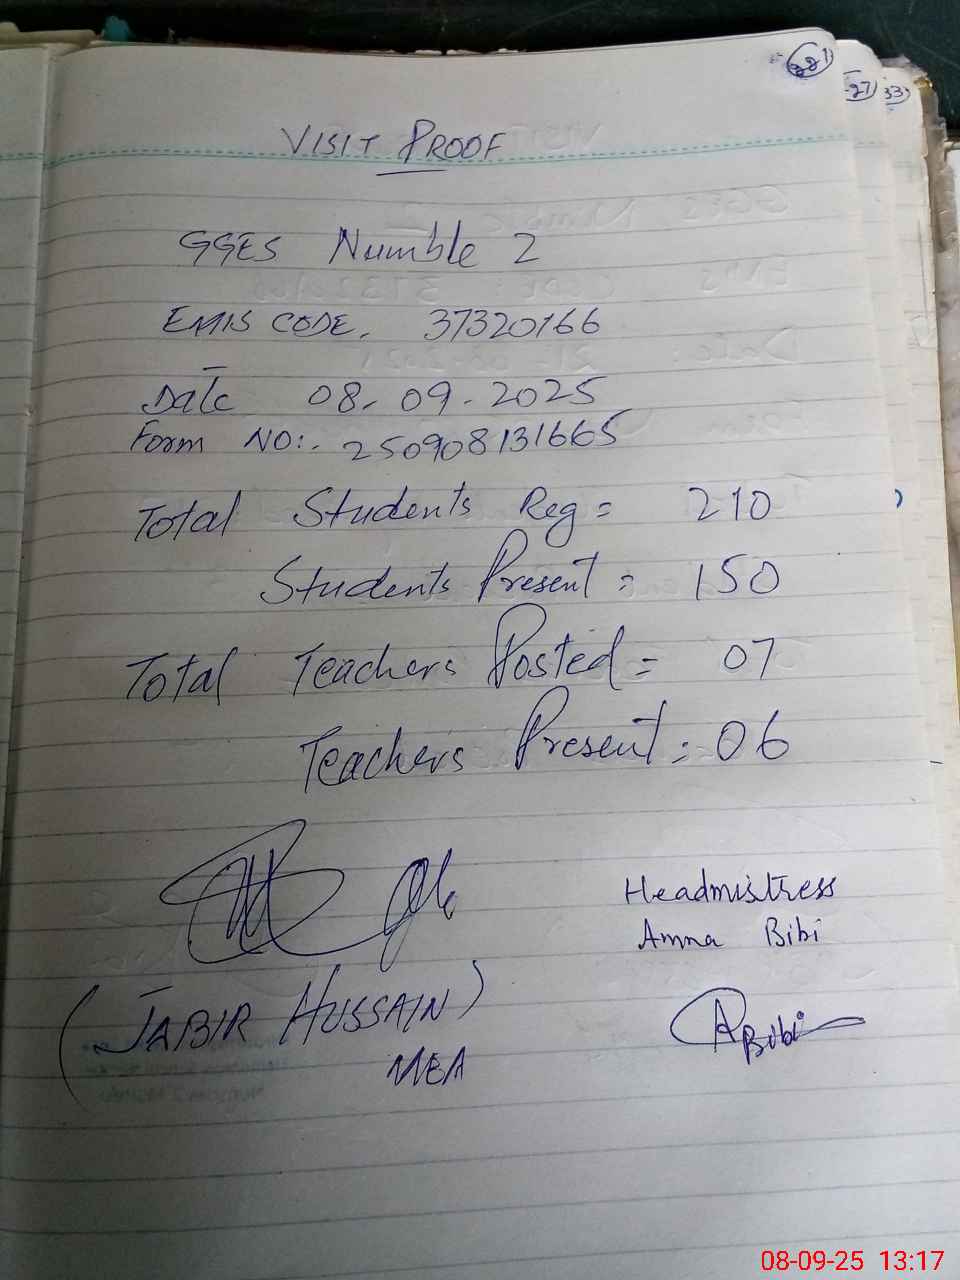 VISIT PROOF
GGES Numble 2
EMIS CODE. 37320166
Date 08.09.2025
Form NO:. 250908131665
Total Students Reg = 210
Students Present = 150
Total Teachers Posted = 07
Teachers Present = 06
Headmistress
Amna Bibi
(JABIR HUSSAIN)
MEA
ABibi
27
33
08-09-25 13:17